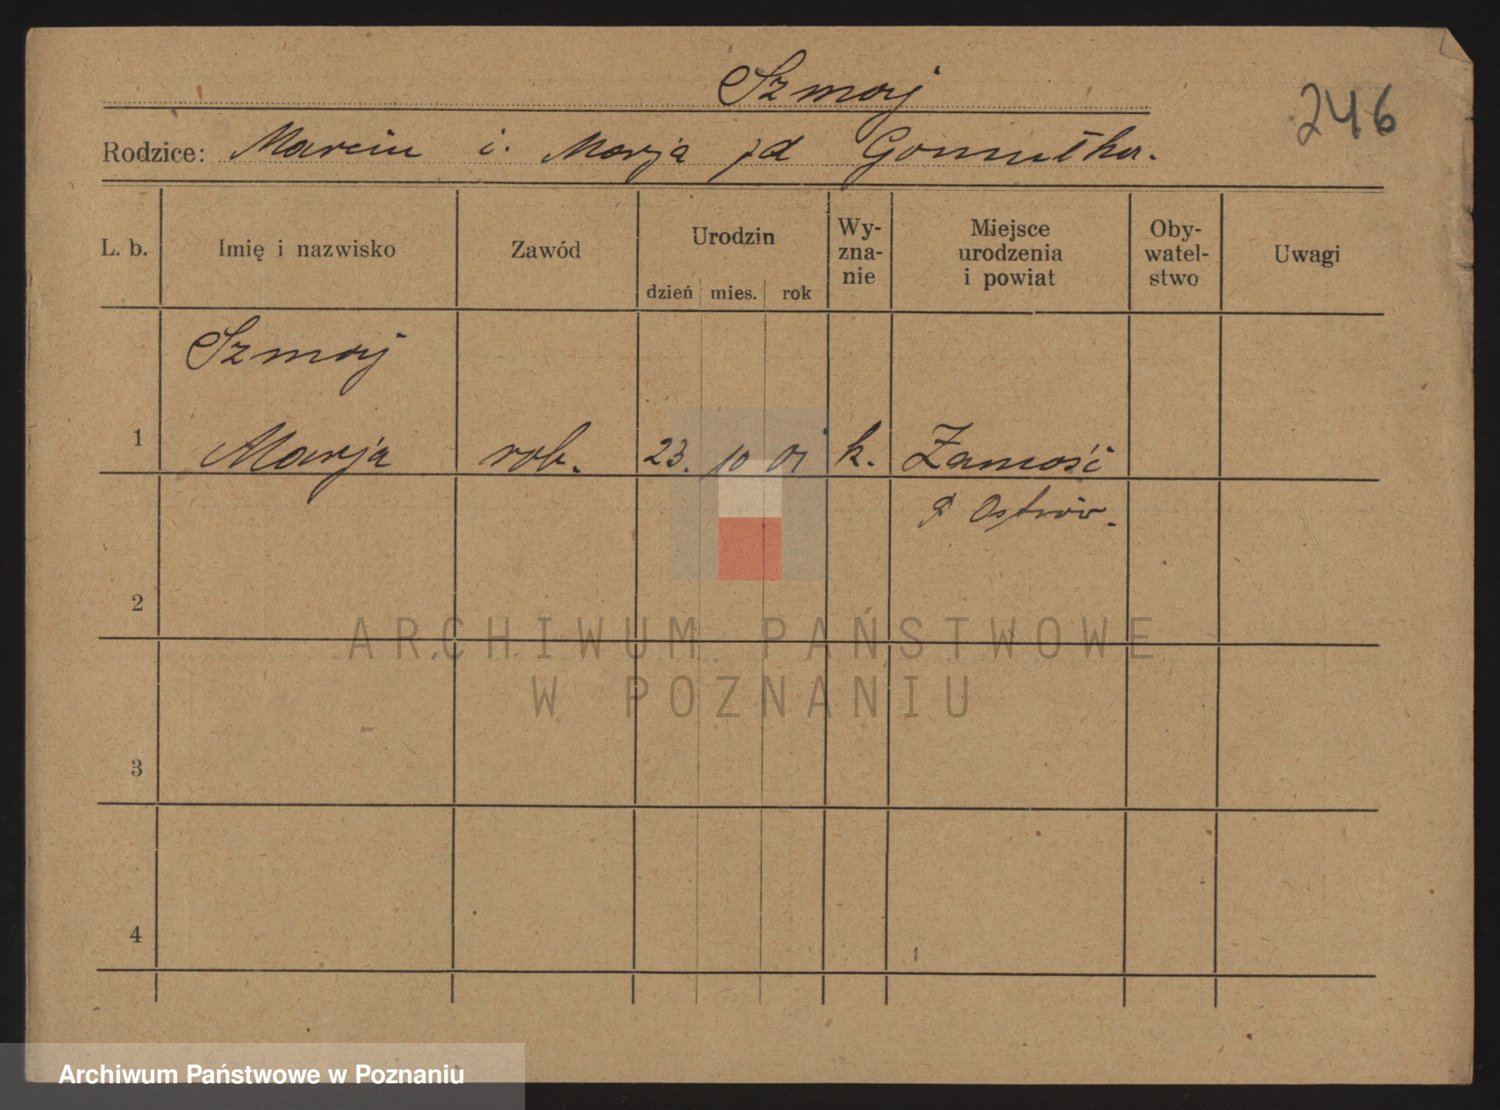 Szmaj
246
Rodzice: Marcin i. Marja zd
L. b. Imię i nazwisko Zawód Urodzin dzień mies. rok Wy-zna-nie Miejsce urodzenia i powiat Oby-watel-stwo Uwagi
Szmaj
1 Marja rob. 23. 10 01 k. Zamość
p Ostrów.
2
ARCHIWUM PAŃSTWOWE
W POZNANIU
3
4
Archiwum Państwowe w Poznaniu